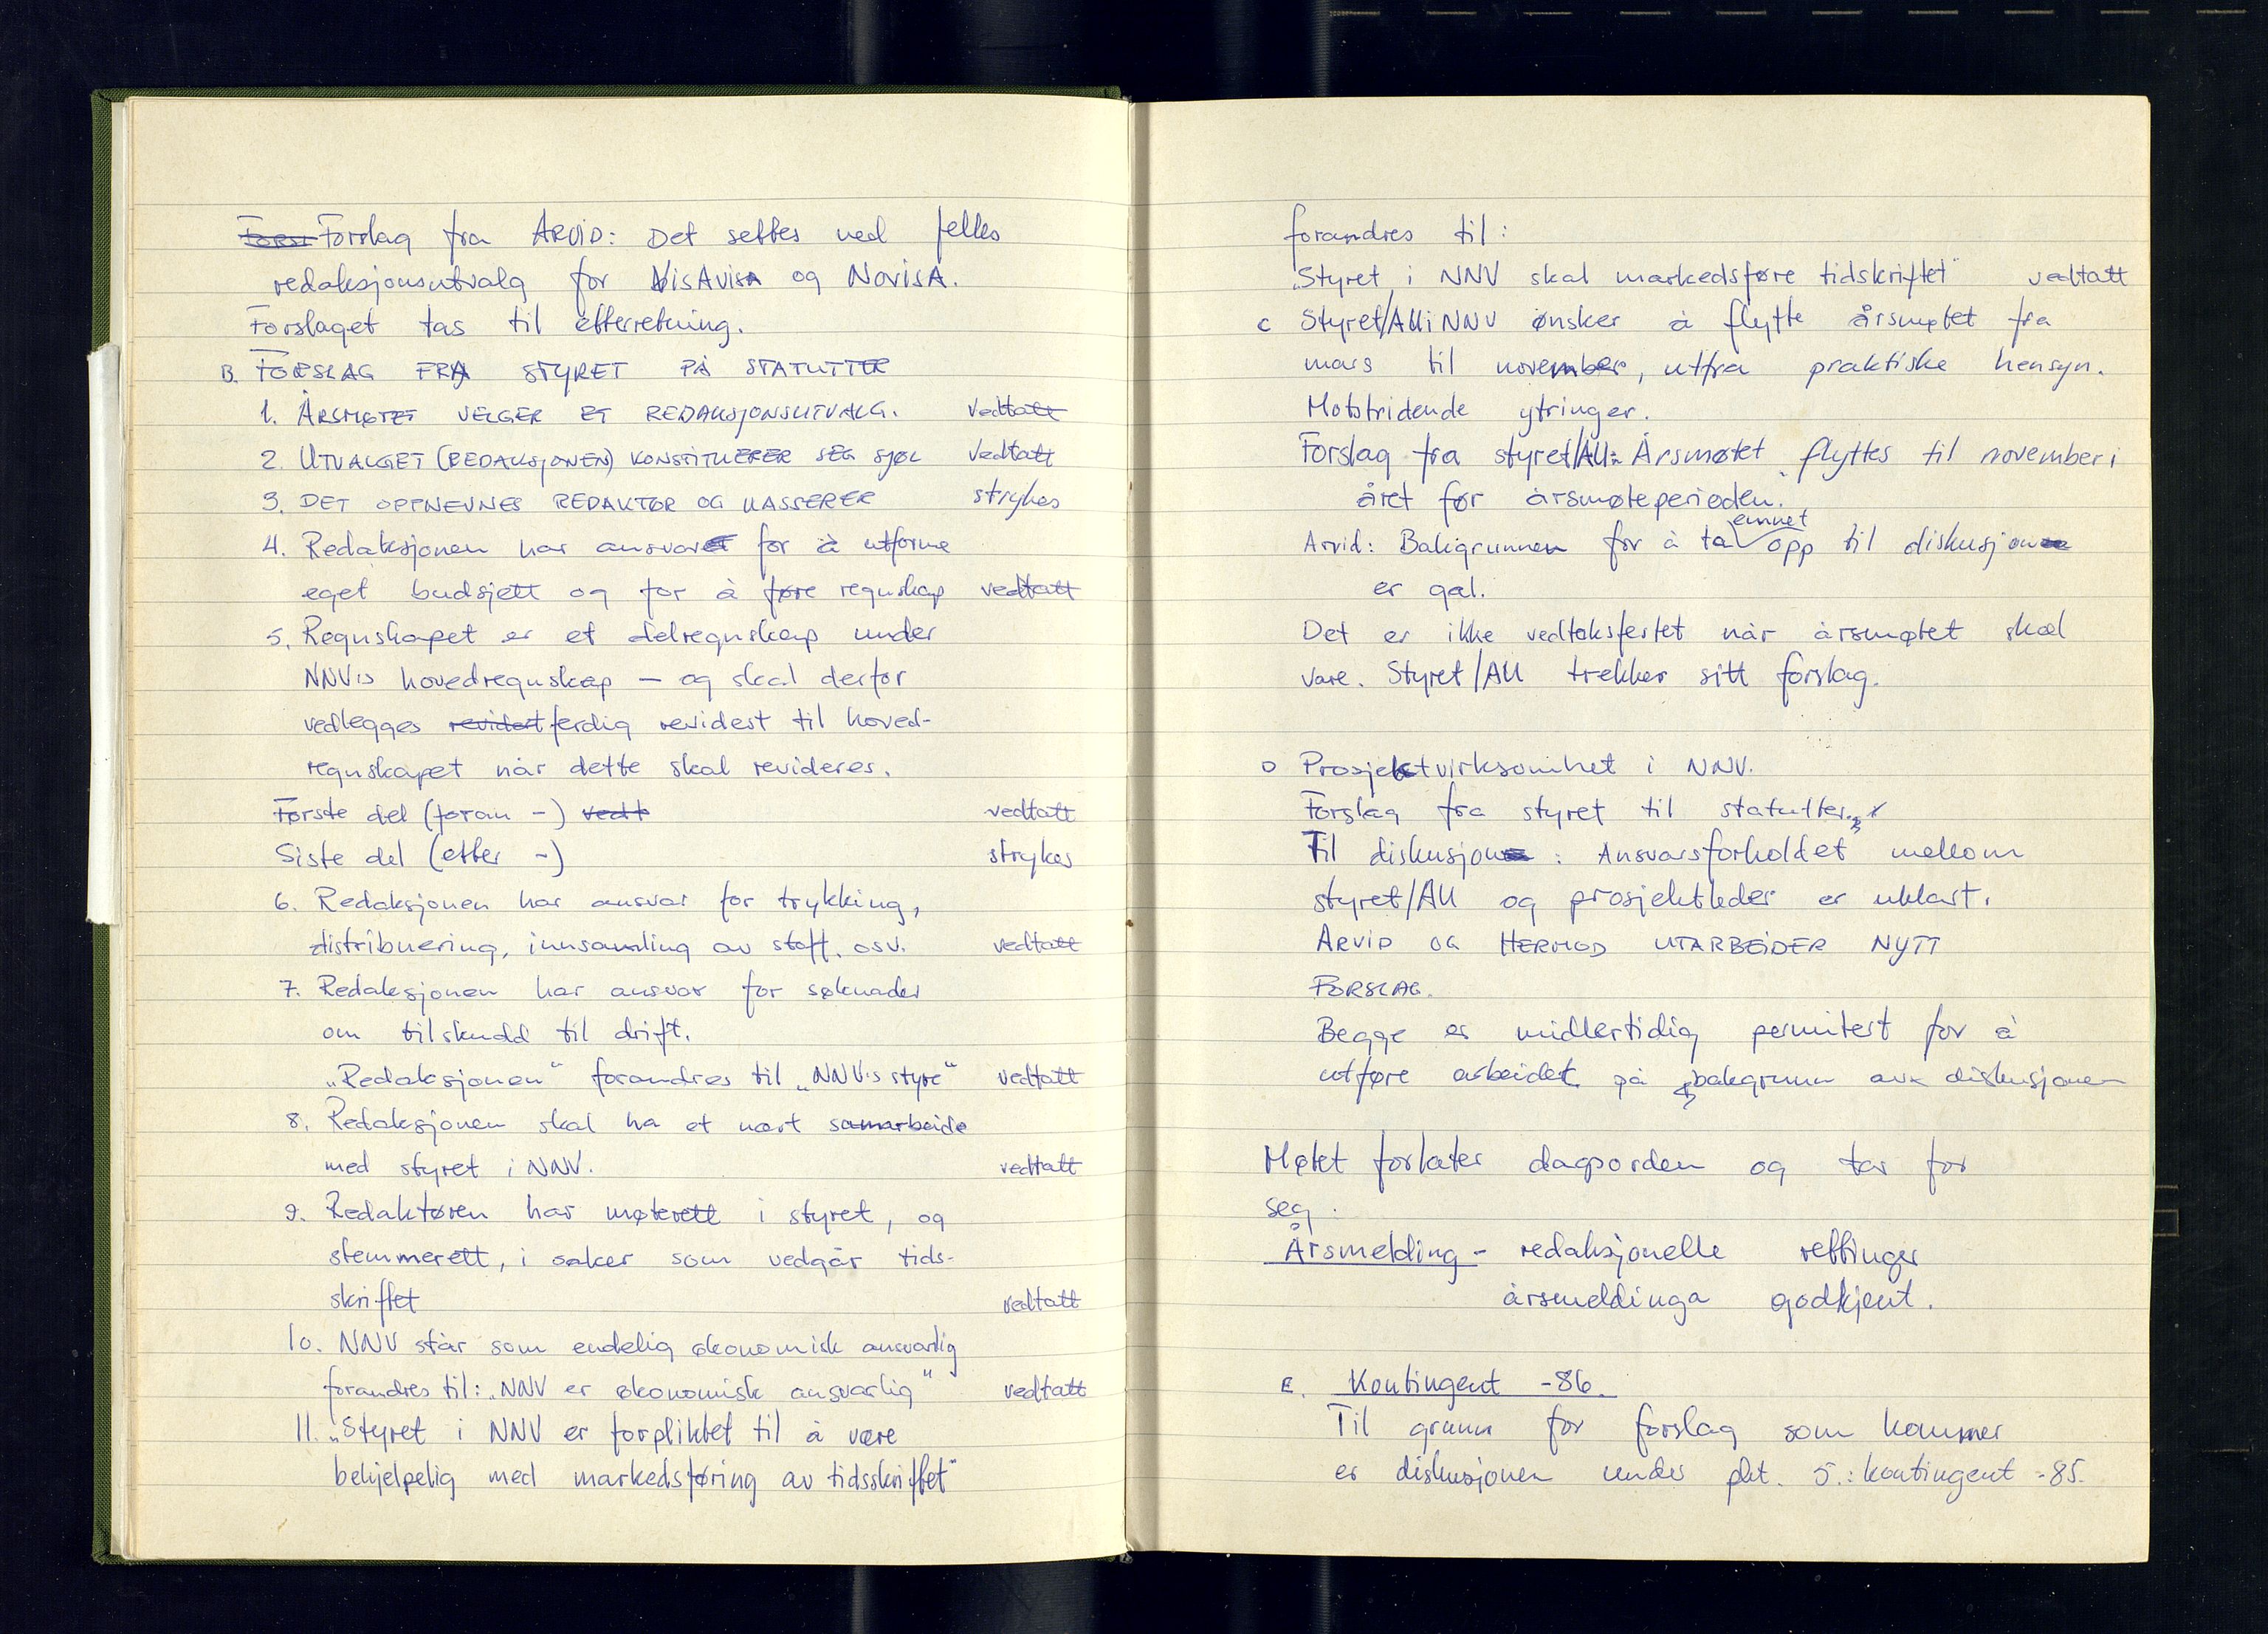 Forsl Forslag fra ARVID: Det settes ned felles
redaksjonsutvalg for VisAvisA og NovisA.
Forslaget tas til etterretning.
B. FORSLAG FRA STYRET PÅ STATUTTER
1. ÅRSMØTET VELGER ET REDAKSJONSUTVALG. Vedtatt
2. UTVALGET (REDAKSJONEN) KONSTITUERER SEG SJØL Vedtatt
3. DET OPPNEVNES REDAKTØR OG KASSERER strykes
4. Redaksjonen har ansvaret for å utforme
eget budsjett og for å føre regnskap vedtatt
5. Regnskapet er et delregnskap under
NNV's hovedregnskap – og skal derfor
vedlegges revidert ferdig revidert til hoved-
regnskapet når dette skal revideres.
Første del (foran -) vedt vedtatt
Siste del (etter -) strykes
6. Redaksjonen har ansvar for trykking,
distribuering, innsamling av stoff. osv. vedtatt
7. Redaksjonen har ansvar for søknader
om tilskudd til drift.
„Redaksjonen" forandres til „NNV's styre" vedtatt
8. Redaksjonen skal ha et nært samarbeide
med styret i NNV. vedtatt
9. Redaktøren har møterett i styret, og
stemmerett, i saker som vedgår tids-
skriftet vedtatt
10. NNV står som endelig økonomisk ansvarlig
forandres til: „NNV er økonomisk ansvarlig" vedtatt
11. „Styret i NNV er forpliktet til å være
behjelpelig med markedsføring av tidsskriftet"
forandres til:
„Styret i NNV skal markedsføre tidskriftet" vedtatt
C Styret/AU i NNV ønsker å flytte årsmøtet fra
mars til november, utfra praktiske hensyn.
Motstridende ytringer.
Forslag fra styret/AU: Årsmøtet flyttes til november i
året før årsmøteperioden.
Arvid: Bakgrunnen for å ta emnet opp til diskusjon
er gal.
Det er ikke vedtaksfestet når årsmøtet skal
være. Styret/AU trekker sitt forslag.
D Prosjektvirksomhet i NNV.
Forslag fra styret til statutter.
Til diskusjon : Ansvarsforholdet mellom
styret/AU og prosjektleder er uklart.
ARVID OG HERMOD UTARBEIDER NYTT
FORSLAG.
Begge er midlertidig permitert for å
utføre arbeidet på bakgrunn av diskusjonen
Møtet forlater dagsorden og tar for
seg :
Årsmelding - redaksjonelle rettinger
årsmeldinga godkjent.
E. Kontingent -86.
Til grunn for forslag som kommer
er diskusjonen under pkt. 5.: kontingent -85.